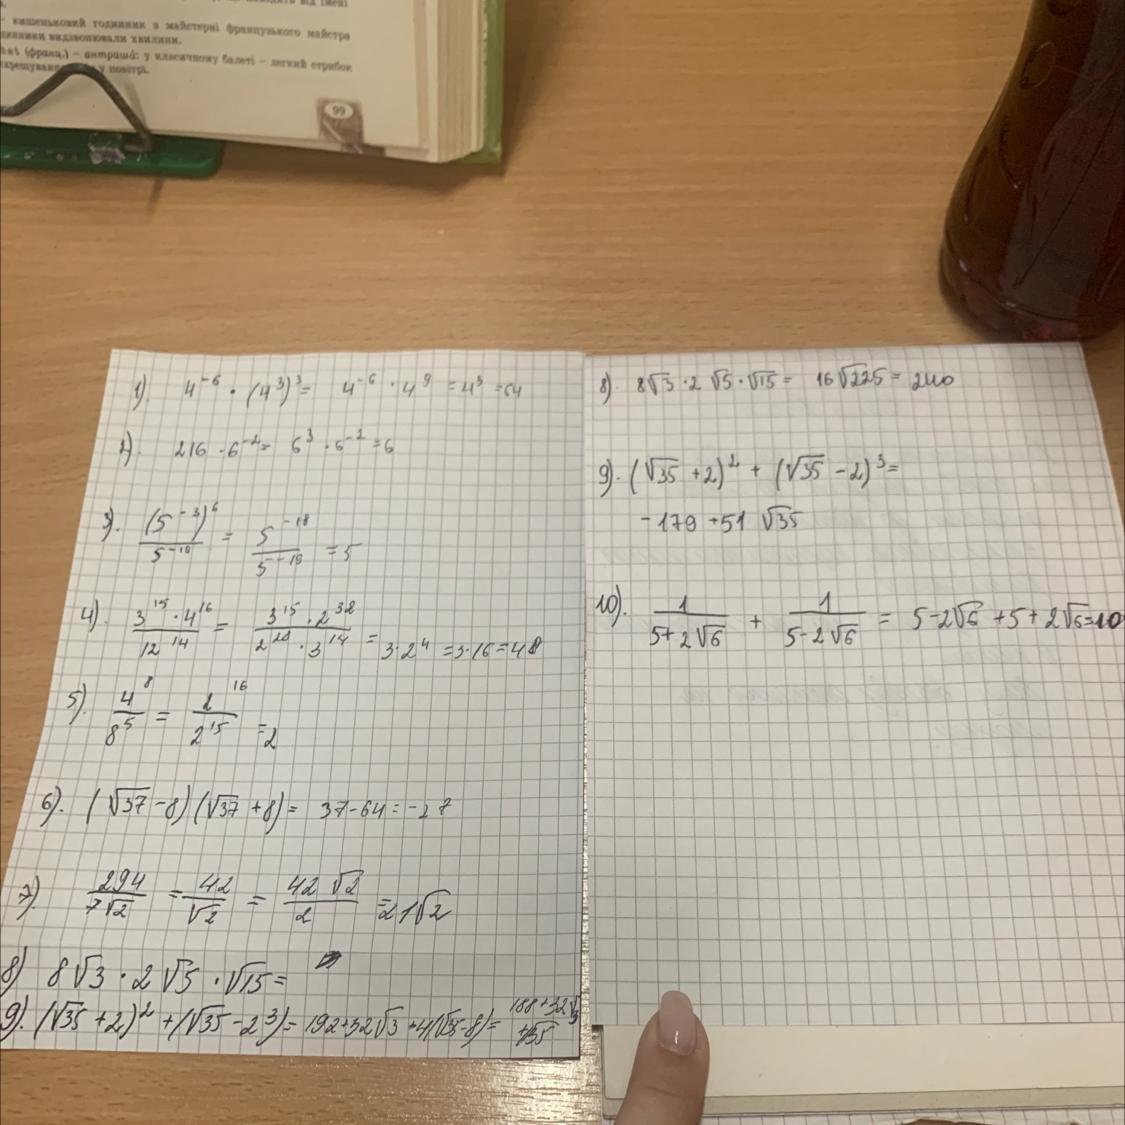 - кишеньковий годинник з майстерні французького майстра
видзвонювали хвилини.
(франц.) – антраша: у класичному балеті – легкий стрибок
у повітрі.
99
1). 4⁻⁶ · (4³)³ = 4⁻⁶ · 4⁹ = 4³ = 64
2). 216 · 6⁻² = 6³ · 6⁻² = 6
3). (5⁻³)⁶ / 5⁻¹⁹ = 5⁻¹⁸ / 5⁻¹⁹ = 5
4). 3¹⁵ · 4¹⁶ / 12¹⁴ = 3¹⁵ · 2³² / 2²⁸ · 3¹⁴ = 3·2⁴ = 3·16 = 48
5). 4⁸ / 8⁵ = 2¹⁶ / 2¹⁵ = 2
6). (√37 - 8)(√37 + 8) = 37 - 64 = -27
7) 294 / 7√2 = 42 / √2 = 42√2 / 2 = 21√2
8) 8√3 · 2√5 · √15 =
9). (√35 + 2)² + (√35 - 2³) = 192 + 32√3 + 4(√35 - 8) =
8). 8√3 · 2√5 · √15 = 16√225 = 240
9). (√35 + 2)² + (√35 - 2)³ =
-179 + 51√35
10). 1 / 5+2√6 + 1 / 5-2√6 = 5-2√6 + 5 + 2√6 = 10